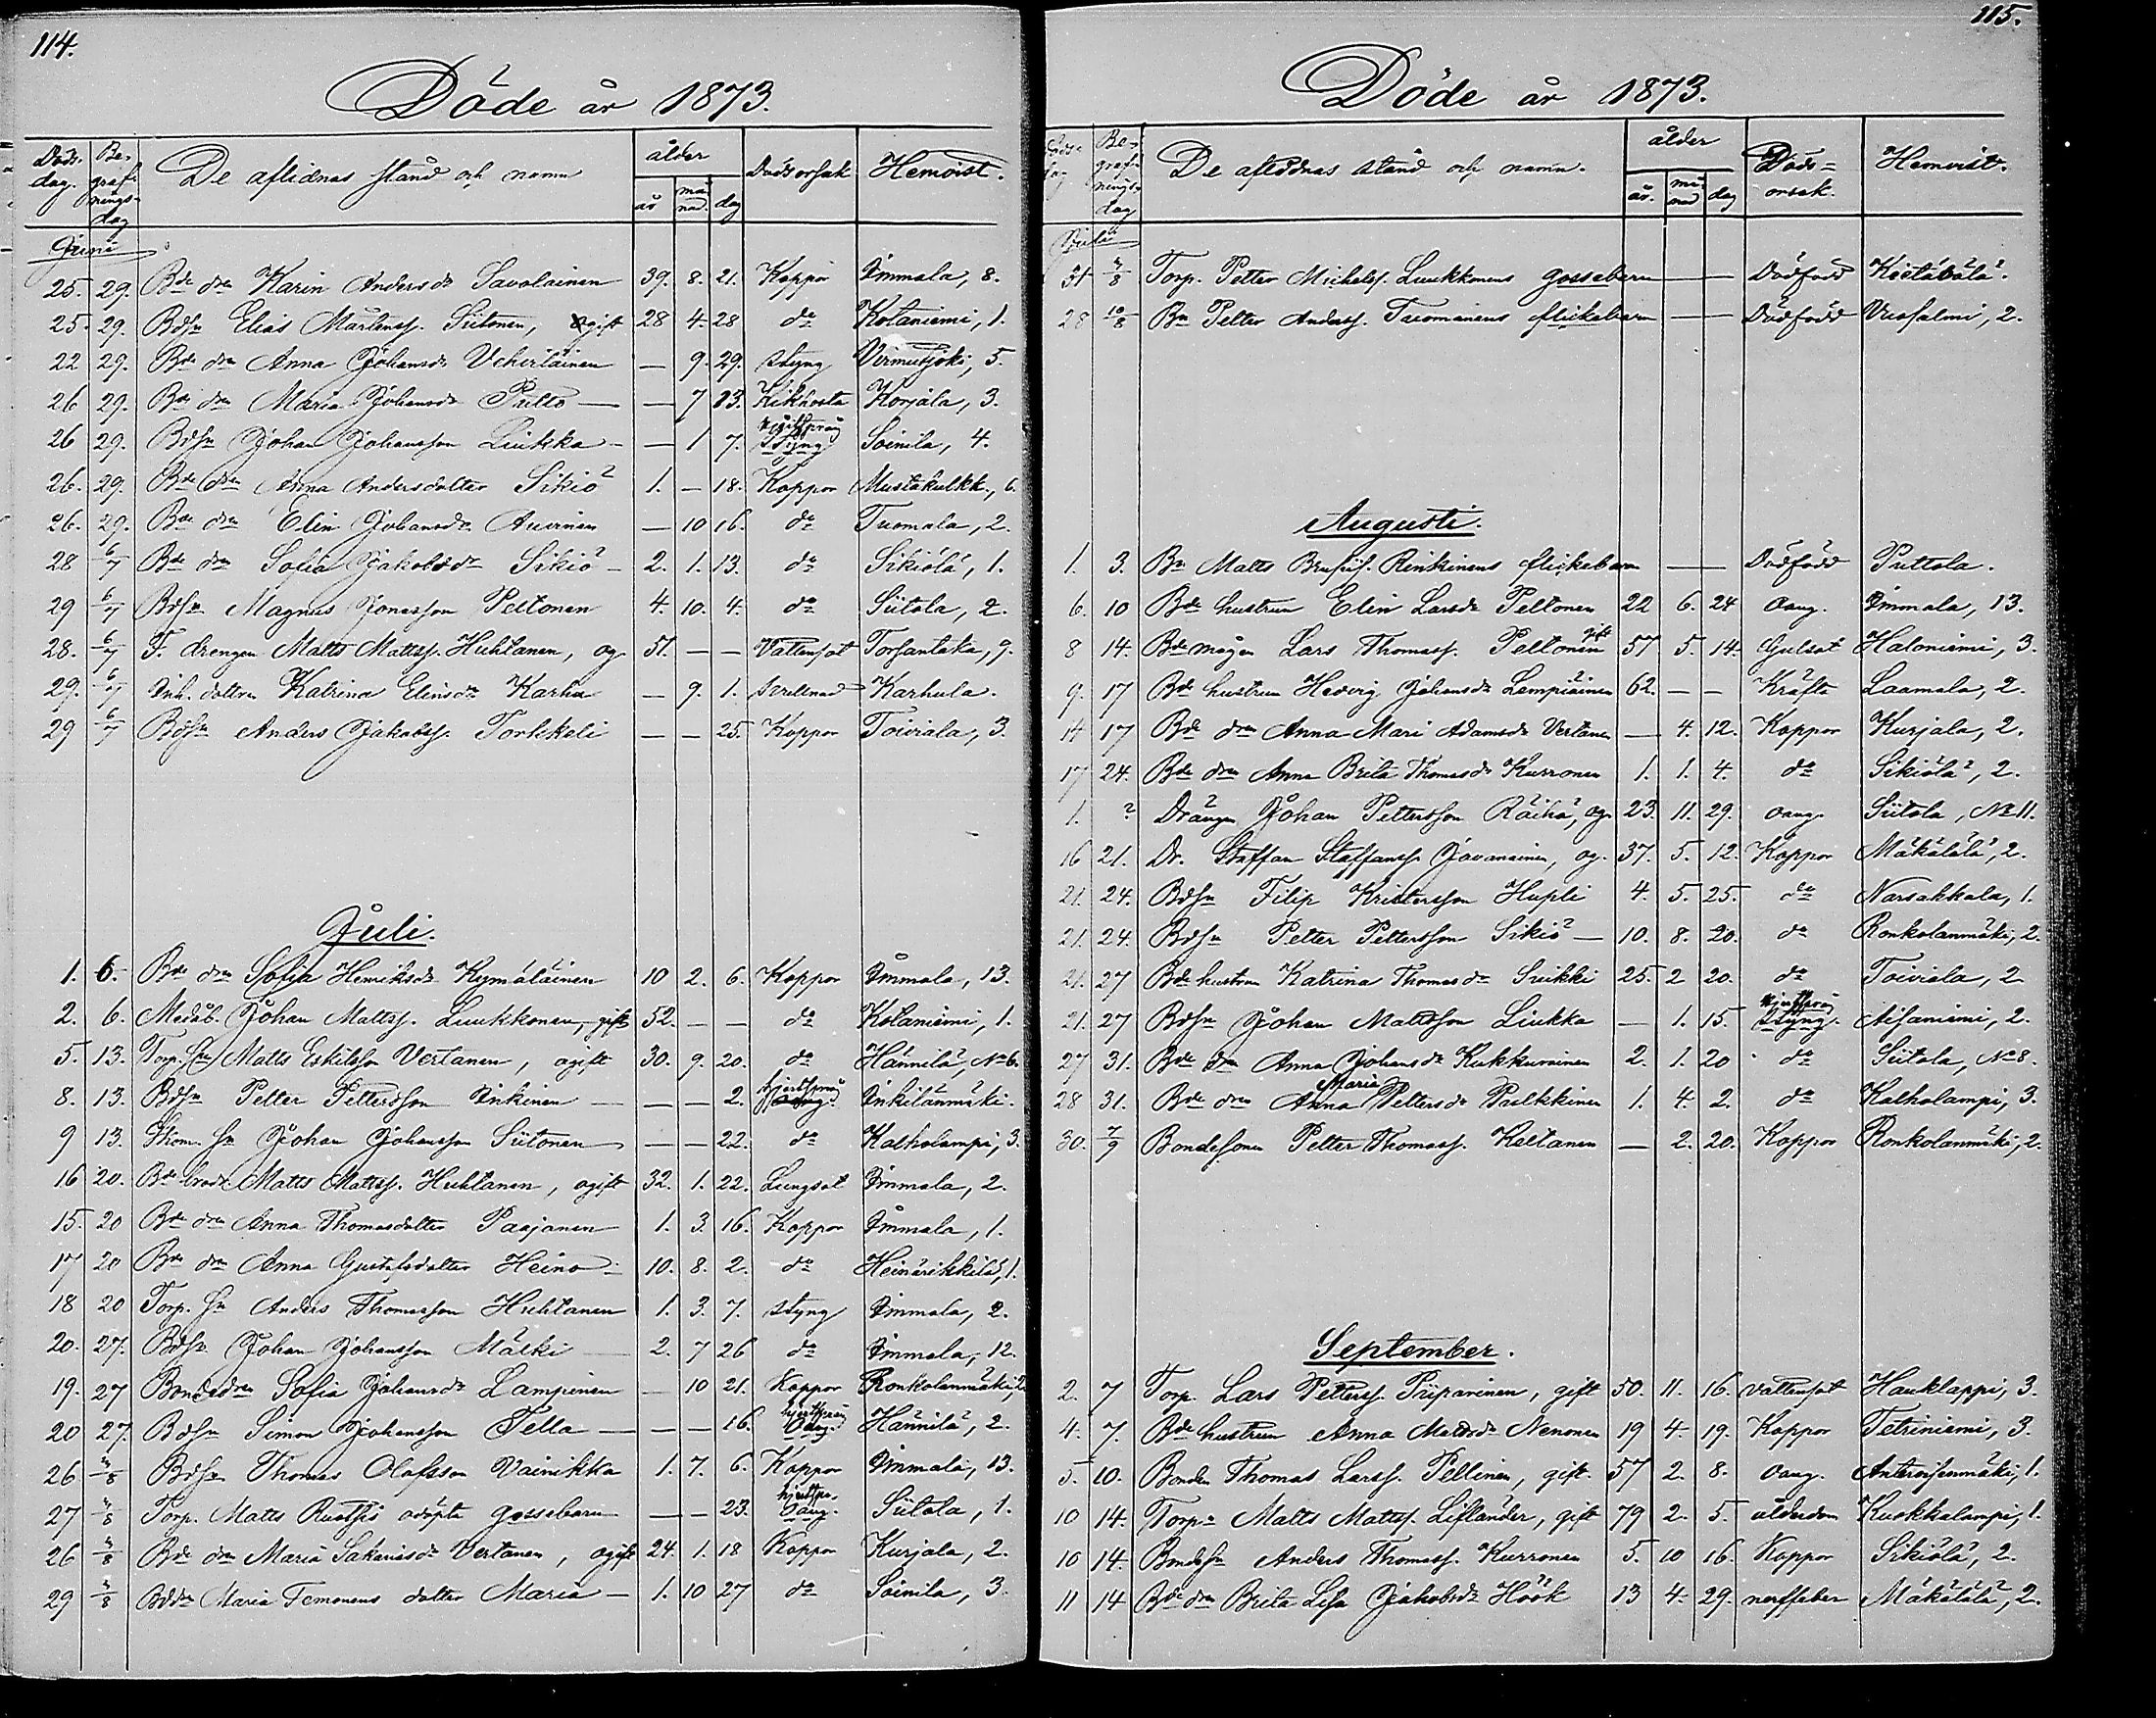 114.
Döde år 1873.
Döds-dag. Be-grafnings-dag De aflidnas stånd och namn ålder år månad. dag Dödsorsak Hemvist.
Juni
25. 29. Bde dr Karin Andersdr Savolainen 39. 8. 21. Koppor Immala, 8.
25. 29. Bdsn Elias Mårtenss. Siitonen, ogift 28 4. 28 do Kotaniemi, 1.
22 29. Bde dr Anna Johansdr Ucherläinen — 9. 29. Styng Virmutjoki, 5.
26 29. Bde dr Maria Johansdr Pulto — — 7 13. Kikhosta Korjala, 3.
26 29. Bdsn Johan Johansson Liukka — — 1 7. Soinila, 4.
26. 29. Bde dr Anna Andersdotter Sikiö 1. — 18. Koppor Mustakulkk., 6.
26. 29. Bde dr Elin Johansdr Auvinen — 10 16. do Tuomala, 2.
28 6/7 Bde dr Sofia Jakobsdr Sikiö — 2. 1. 13. do Sikiölä, 1.
29 6/7 Bdsn Magnus Jonasson Peltonen 4. 10. 4. do Siitola, 2.
28. 6/7 F. drengen Matts Mattss. Huhtanen, og. 51. — — Vattensot Torsantaka, 9.
29. 6/7 Inh. dottren Katrina Elinsdr Karhu — 9. 1. Karhula.
29 6/7 Bdsn Anders Jakobss. Torkkeli — — 25. Koppor Toiviala, 3.
Juli.
1. 6. Bde dr Sofia Henriksdr Kymäläinen 10 2. 6. Koppor Immala, 13.
2. 6. Johan Mattss. Luukkonen, gift 52. — — do Kotaniemi, 1.
5. 13. Torp. sn Matts Eskilsson Vertanen, ogift 30. 9. 20. do Hännilä, No 6.
8. 13. Bdsn Petter Pettersson Inkinen — — — 2. Inkilänmäki.
9 13. Johan Johansson Siitonen — — 22. do Kalholampi, 3.
16 20. Bde brodr Matts Mattss. Huhtanen, ogift 32. 1. 22. Lungsot Immala, 2.
15. 20 Bde dr Anna Thomasdotter Paajanen 1. 3. 16. Koppor Immala, 1.
17 20 Bde dr Anna Gustafsdotter Heino — 10. 8. 2. do Heinärikkilä, 1.
18 20 Torp. sn Anders Thomasson Huhtanen 1. 3. 7. Styng Immala, 2.
20. 27. Bdsn Johan Johansson Mälki — 2. 7 26 do Immala, 12.
19. 27 Bondedr Sofia Johansdr Lampinen — 10 21. Koppor Ronkolanmäki, 2
20 27. Bdsn Simon Johansson Tella — — — 16. Hännilä, 2.
26 3/8 Bdsn Thomas Olofsson Vainikka 1. 7. 6. Koppor Immala, 13.
27 3/8 Torp. Matts odöpta gossebarn — — 23. Siitola, 1.
26 3/8 Bde dr Maria Sakariasdr Vertanen, ogift 24. 1. 18 Koppor Kurjala, 2.
29 3/8 Maria Temonens dotter Maria — 1. 10 27 do Soinila, 3.
115.
Döde år 1873.
Döds-dag Be-grafnings-dag De aflidnas stånd och namn. ålder år. månad dag Döds-orsak. Hemvist.
Juli
31 3/8 Torp. Petter Michelss. Luukkonens gossebarn — — Dödfödd
28 10/8 Bn Petter Anderss. Tuomainens flickebarn — — Dödfödd Vuosalmi, 2.
Augusti.
1. 3. Bn Matts Rinkinens flickebarn — Dödfödd Puttola.
6. 10 Bde hustrun Elin Larsdr Peltonen 22 6. 24 oang. Immala, 13.
8 14. Bde mågen Lars Thomass. Peltonen gift 57 5. 14. Gulsot Haloniemi, 3.
9. 17 Bde hustrun Hedvig Johansdr Lempiäinen 62. — — Kräfta Laamala, 2.
14 17 Bde dr Anna Mari Adamsdr Vertanen — 4. 12. Koppor Kurjala, 2.
17 24. Bde dr Anna Brita Thomasdr Kurronen 1. 1. 4. do Sikiölä, 2.
1. ? Drängen Johan Pettersson Räihä, og. 23. 11. 29. oang. Siitola, No 11.
16 21. Dr. Staffan Staffanss. Javanainen, og. 37. 5. 12. Koppor Mäkälälä, 2.
21. 24. Bdsn Filip Kristersson Hupli 4. 5. 25. do Narsakkala, 1.
21. 24. Bdsn Petter Pettersson Sikiö — 10. 8. 20. do Ronkolanmäki, 2.
21. 27 Bde hustrun Katrina Thomasdr Suikki 25. 2 20. do Toiviala, 2
21. 27 Bdsn Johan Mattsson Liukka — 1. 15. Aisaniemi, 2.
27 31. Bde dr Anna Johansdr Kukkurainen 2. 1. 20 do Siitola, No 8.
28 31. Bde dr Anna Maria Pettersdr Pulkkinen 1. 4. 2. do Kalholampi, 3.
30. 7/9 Bondesonen Petter Thomass. Keltanen — 2. 20. Koppor Ronkolanmäki, 2.
September.
2. 7 Torp. Lars Petterss. Piiparinen, gift 50. 11. 16. Vattensot Hauklappi, 3.
4. 7. Bde hustrun Anna Mattsdr Nenonen 19 4. 19. Koppor Tetriniemi, 3.
5. 10. Bonden Thomas Larss. Pellinen, gift. 57 2. 8. oang. Anteroisenmäki, 1.
10 14. Torp. Matts Mattss. Lifländer, gift 79 2. 5. ålderdom Kuokkalampi, 1.
10 14. Bondesn Anders Thomass. Kurronen 5. 10 16. Koppor Sikiölä, 2.
11 14 Bde dr Brita Lisa Jakobsdr Höök 13 4. 29. nerffeber Mäkälälä, 2.